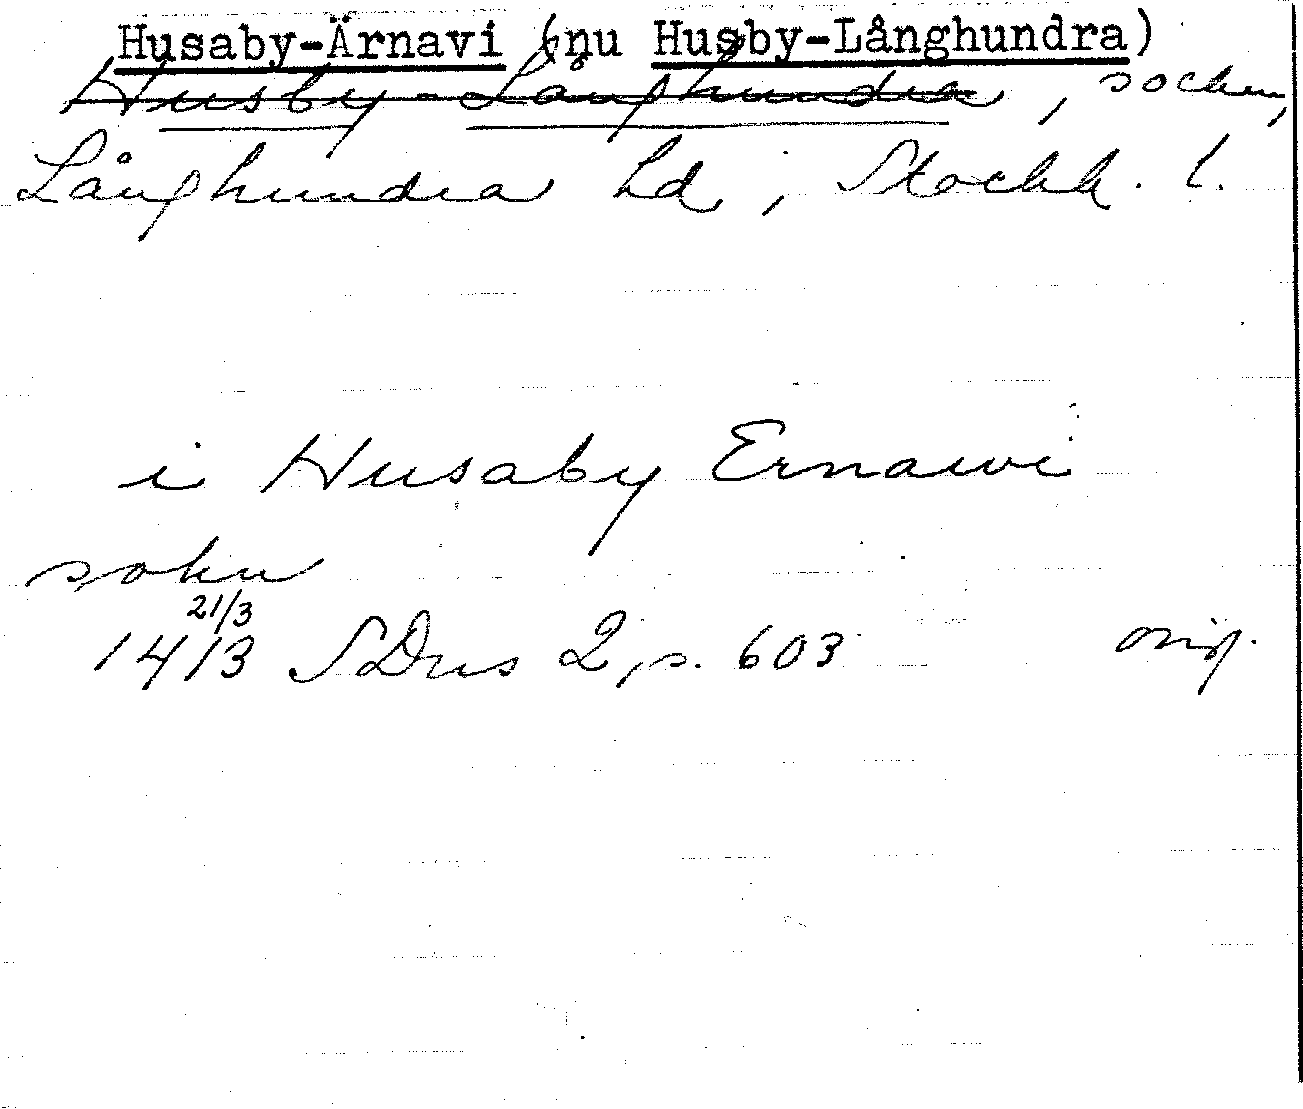 Husaby-Ärnavi (nu Husby-Långhundra)
Husby-Långhundra, socken,
Långhundra hd, Stockh. l.
i Husaby Ernawi
sokn
21/3
1413 SDns 2, s. 603 orig.